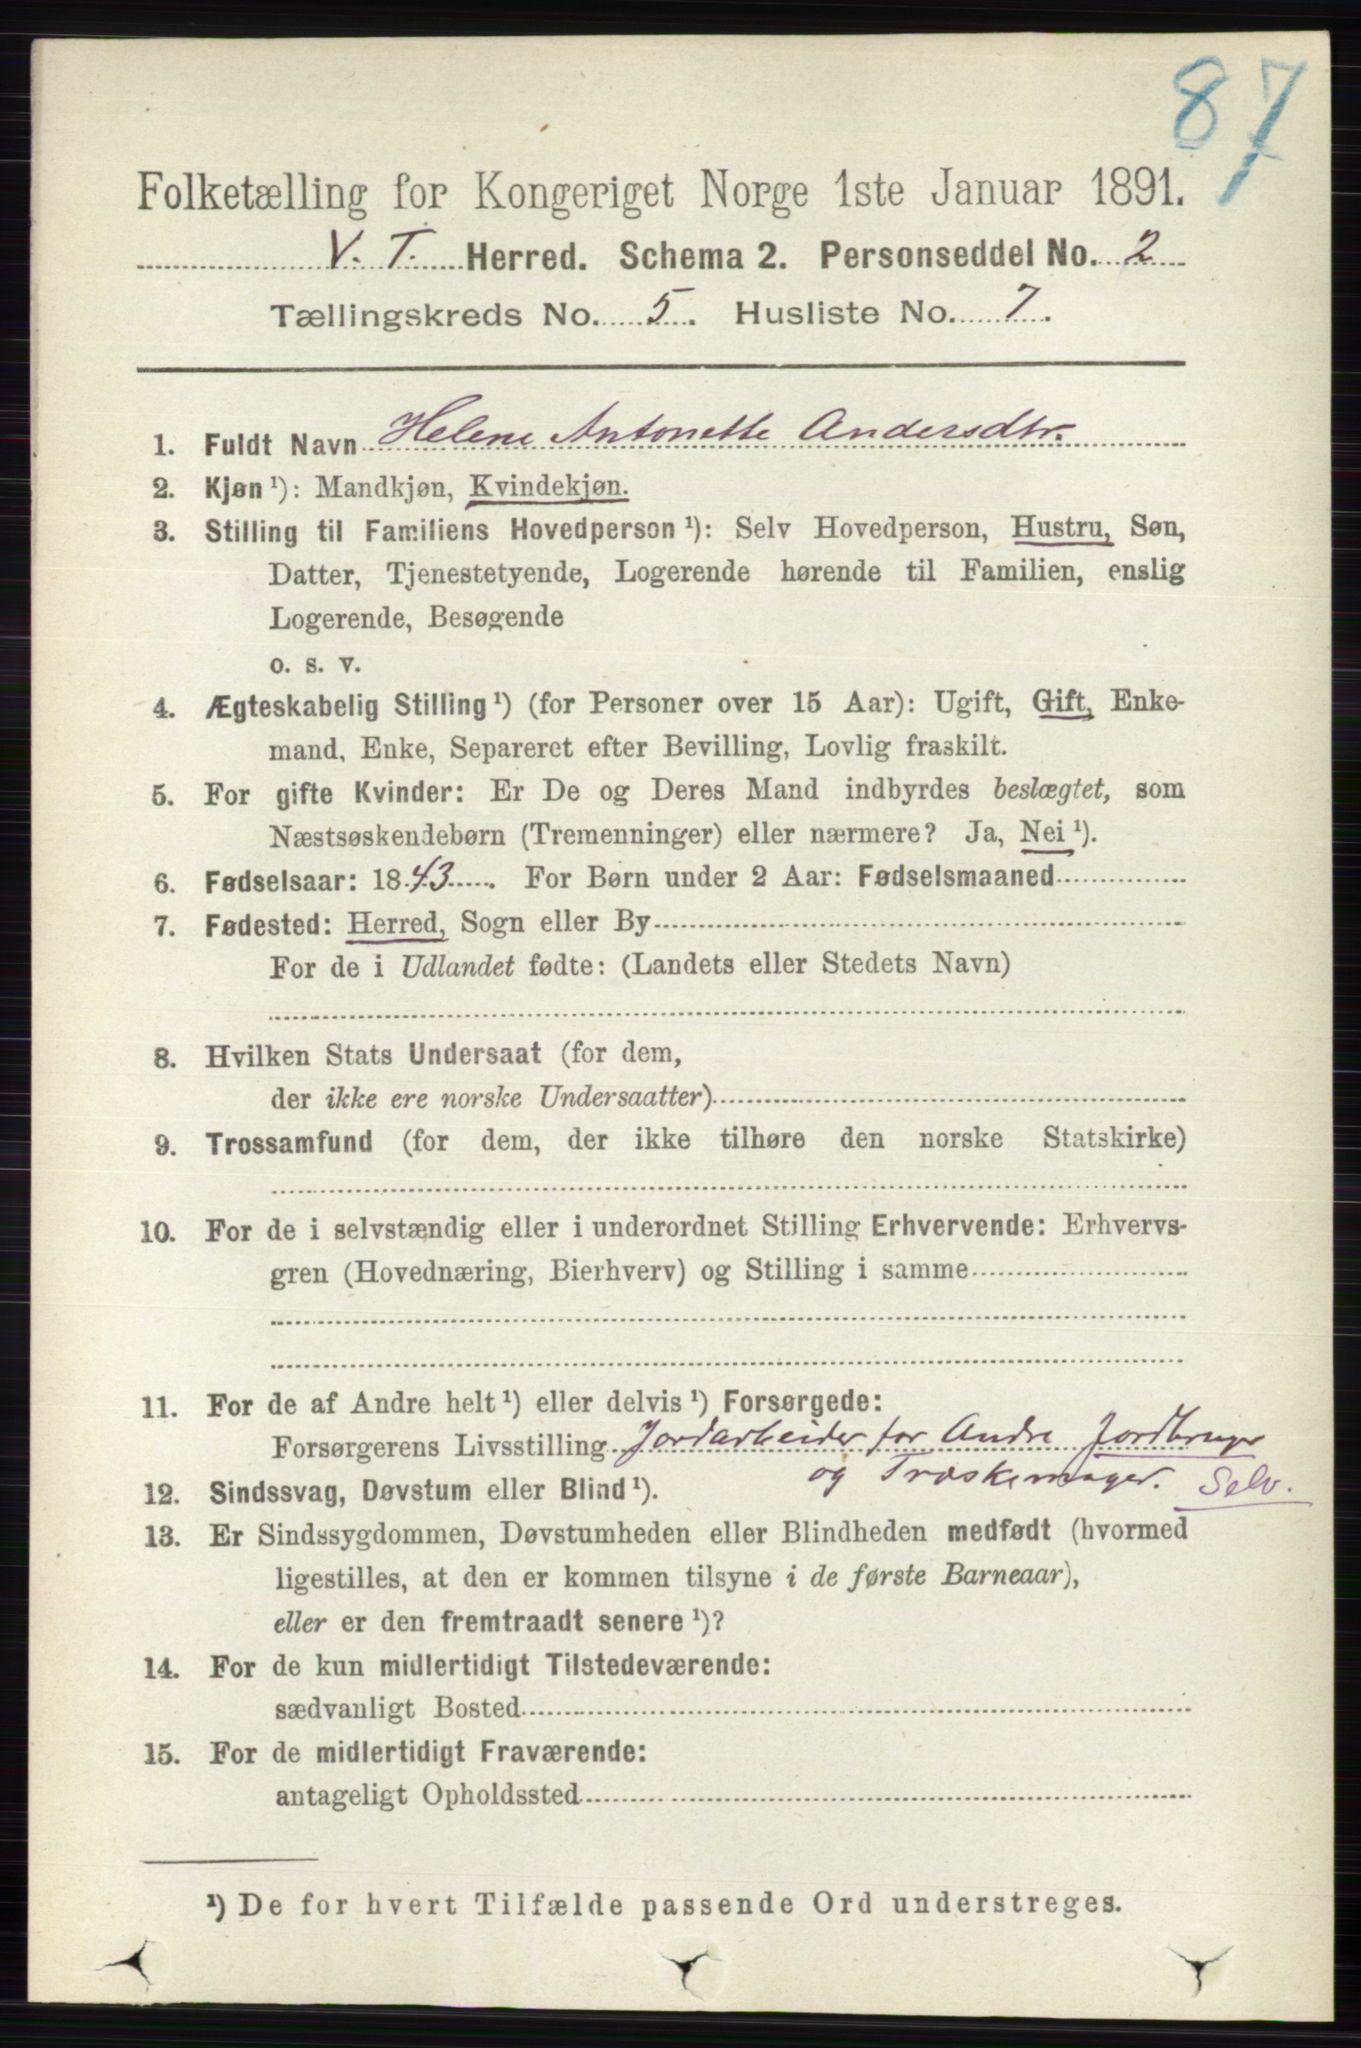 87
Folketælling for Kongeriget Norge 1ste Januar 1891.
V. T. Herred. Schema 2. Personseddel No. 2
Tællingskreds No. 5. Husliste No. 7.
1. Fuldt Navn Helene Antonette Andersdtr.
2. Kjøn ¹): Mandkjøn, Kvindekjøn.
3. Stilling til Familiens Hovedperson ¹): Selv Hovedperson, Hustru, Søn,
Datter, Tjenestetyende, Logerende hørende til Familien, enslig
Logerende, Besøgende
o. s. v.
4. Ægteskabelig Stilling ¹) (for Personer over 15 Aar): Ugift, Gift, Enke-
mand, Enke, Separeret efter Bevilling, Lovlig fraskilt.
5. For gifte Kvinder: Er De og Deres Mand indbyrdes beslægtet, som
Næstsøskendebørn (Tremenninger) eller nærmere? Ja, Nei ¹).
6. Fødselsaar: 1843. For Børn under 2 Aar: Fødselsmaaned
7. Fødested: Herred, Sogn eller By
For de i Udlandet fødte: (Landets eller Stedets Navn)
8. Hvilken Stats Undersaat (for dem,
der ikke ere norske Undersaatter)
9. Trossamfund (for dem, der ikke tilhøre den norske Statskirke)
10. For de i selvstændig eller i underordnet Stilling Erhvervende: Erhvervs-
gren (Hovednæring, Bierhverv) og Stilling i samme
11. For de af Andre helt ¹) eller delvis ¹) Forsørgede:
Forsørgerens Livsstilling Jordarbeider for Andre Jordbruger
og Træskomager. Selv.
12. Sindssvag, Døvstum eller Blind ¹).
13. Er Sindssygdommen, Døvstumheden eller Blindheden medfødt (hvormed
ligestilles, at den er kommen tilsyne i de første Barneaar),
eller er den fremtraadt senere ¹)?
14. For de kun midlertidigt Tilstedeværende:
sædvanligt Bosted
15. For de midlertidigt Fraværende:
antageligt Opholdssted
¹) De for hvert Tilfælde passende Ord understreges.